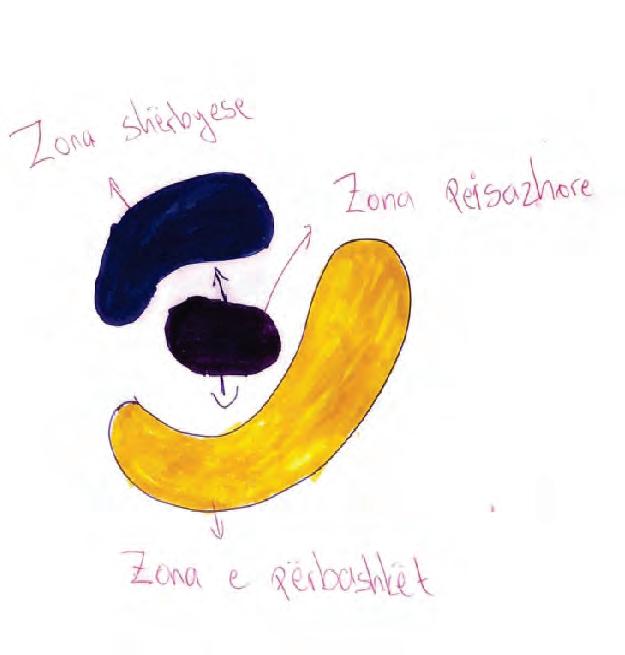 Zona shërbyese
Zona peisazhore
Zona e përbashkët